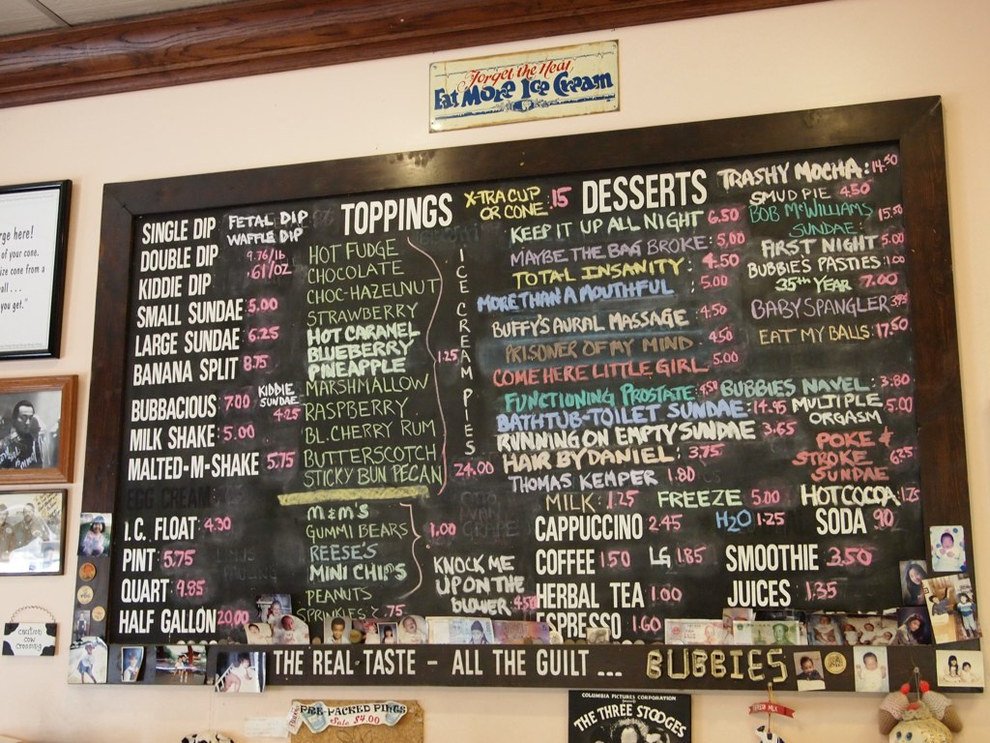 Forget the Heat
Eat More Ice Cream
SINGLE DIP
DOUBLE DIP
KIDDIE DIP
SMALL SUNDAE 5.00
LARGE SUNDAE 6.25
BANANA SPLIT 8.75
BUBBACIOUS 7.00
MILK SHAKE 5.00
MALTED-M-SHAKE 5.75
EGG CREAM
I.C. FLOAT 4.30
PINT 5.75
QUART 9.85
HALF GALLON 20.00
FETAL DIP
WAFFLE DIP
9.76/lb
.61/OZ
KIDDIE
SUNDAE
4.25
TOPPINGS
HOT FUDGE
CHOCOLATE
CHOC-HAZELNUT
STRAWBERRY
HOT CARAMEL
BLUEBERRY
PINEAPPLE
MARSHMALLOW
RASPBERRY
BL.CHERRY RUM
BUTTERSCOTCH
STICKY BUN PECAN
1.25
M&M'S
GUMMI BEARS
REESE'S
MINI CHIPS
PEANUTS
SPRINKLES .75
1.00
ICE CREAM PIES
24.00
X-TRA CUP
OR CONE .15
KNOCK ME
UP ON THE
BLOWER 4.50
DESSERTS
KEEP IT UP ALL NIGHT 6.50
MAYBE THE BAG BROKE: 5.00
TOTAL INSANITY: 4.50
MORE THAN A MOUTHFUL : 5.00
BUFFY'S AURAL MASSAGE : 4.50
PRISONER OF MY MIND 4.50
COME HERE LITTLE GIRL 5.00
FUNCTIONING PROSTATE 4.50
BATHTUB-TOILET SUNDAE : 14.95
RUNNING ON EMPTY SUNDAE 3.65
HAIR BY DANIEL: 3.75
THOMAS KEMPER 1.80
TRASHY MOCHA: 14.50
SMUD PIE 4.50
BOB McWILLIAMS
SUNDAE: 15.50
FIRST NIGHT 5.00
BUBBIE'S PASTIES: 1.00
35TH YEAR 7.00
BABY SPANGLER 3.95
EAT MY BALLS: 17.50
BUBBIES NAVEL: 3.80
MULTIPLE
ORGASM 5.00
POKE &
STROKE
SUNDAE 6.25
MILK: 1.25 FREEZE 5.00 HOT COCOA: 1.75
CAPPUCCINO 2.45 H2O 1.25 SODA .90
COFFEE 1.50 LG 1.85 SMOOTHIE 3.50
HERBAL TEA 1.00 JUICES 1.35
ESPRESSO 1.60
THE REAL TASTE - ALL THE GUILT... BUBBIES
PRE-PACKED PINTS
Sale $4.00
COLUMBIA PICTURES CORPORATION
THE THREE STOOGES